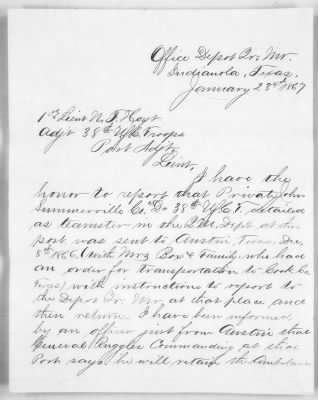 Office Depot Qr. Mr.
Indianola, Texas,
January 23rd 1867
1st Lieut N. F. Hoyt
Adjt 38th U.C. Troops
Post Adjt,
Lieut,
I have the
honor to report that Private John
Summerville Co. "D" 38th U.C.T. detailed
as teamster in the Q.M. Depot at this
post, was sent to Austin, Texas, Dec,
8th 1866, with Mrs Box & Family, who had
an order for transportation to Cook Co.
Texas) with instructions to report to
the Depot Qr. Mr, at that place and
then return. I have been informed
by an officer just from Austin that
General Ruggles Commanding at that
Post says he will retain the Ambulance